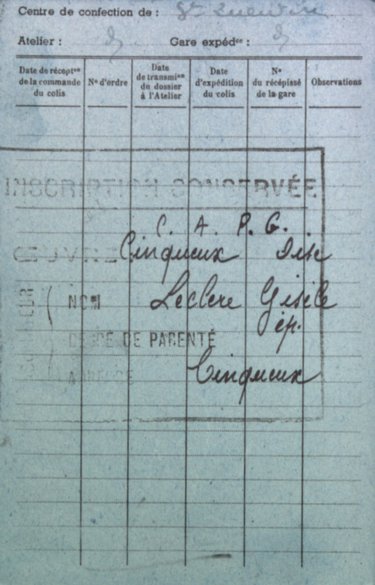 Centre de confection de : St Quentin
Atelier : Gare expédre :
Date de récepton de la commande du colis
N° d'ordre
Date de transmion du dossier à l'Atelier
Date d'expédition du colis
N° du récépissé de la gare
Observations
INSCRIPTION CONSERVÉE
C. A. P. G.
ŒUVRE Cinqueux Oise
NOM Leclere Gisèle
ép.
DE PARENTÉ
ADRESSE Cinqueux